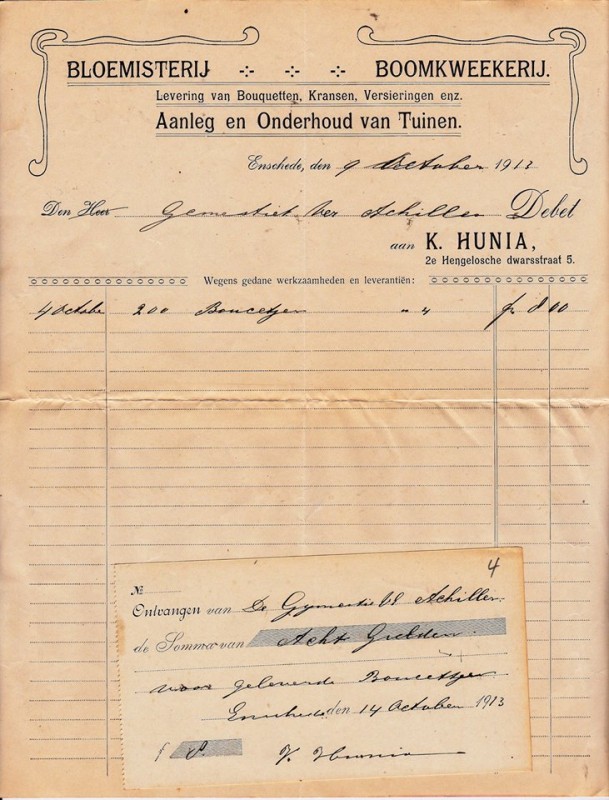 BLOEMISTERIJ BOOMKWEEKERIJ.
Levering van Bouquetten, Kransen, Versieringen enz.
Aanleg en Onderhoud van Tuinen.
Enschede, den 9 October 1913
Den Heer Achilles Debet
aan K. HUNIA,
2e Hengelosche dwarsstraat 5.
Wegens gedane werkzaamheden en leverantiën:
4 Octobe 200 Boucetjes " 4 f 8 00
4
№
Ontvangen van De Achilles
de Somma van Acht Gulden.
voor geleverde Boucetjes
Enschede den 14 October 1913
f 8. K. Hunia